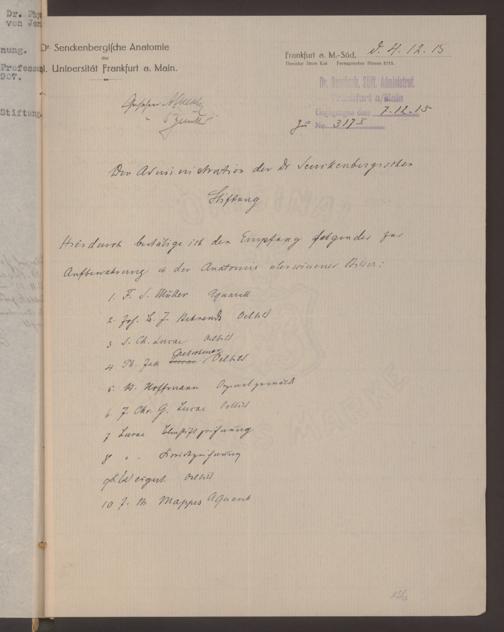 Dr. Phy
von Jen
nung.
Professo
907.
Stiftung
Dr. Senckenbergische Anatomie
der
Kgl. Universität Frankfurt a. Main.
Frankfurt a. M.-Süd, d. 4.12.15
Dr. Senckenb. Stift. Administrat.
Frankfurt a/Main
Eingegangen den 7.12.15
zu No. 3175
Gesehen
Der Administration der Dr Senckenbergischen
Stiftung
Hierdurch bestätige ich den Empfang folgender zur
Aufbewahrung in der Anatomie überwiesener Bilder:
1. F. S. Müller Aquarell
2. Joh. B. J. Behrends Oelbild
3 S. Ch. Lucae Oelbild
4 Th. Oelbild
5 W. Hoffmann
6 J. Chr. G. Lucae Oelbild
7 Lucae Bleistiftzeichnung
8 " Kreidezeichnung
9 Weigert Oelbild
10 J. M. Mappes Aquarell